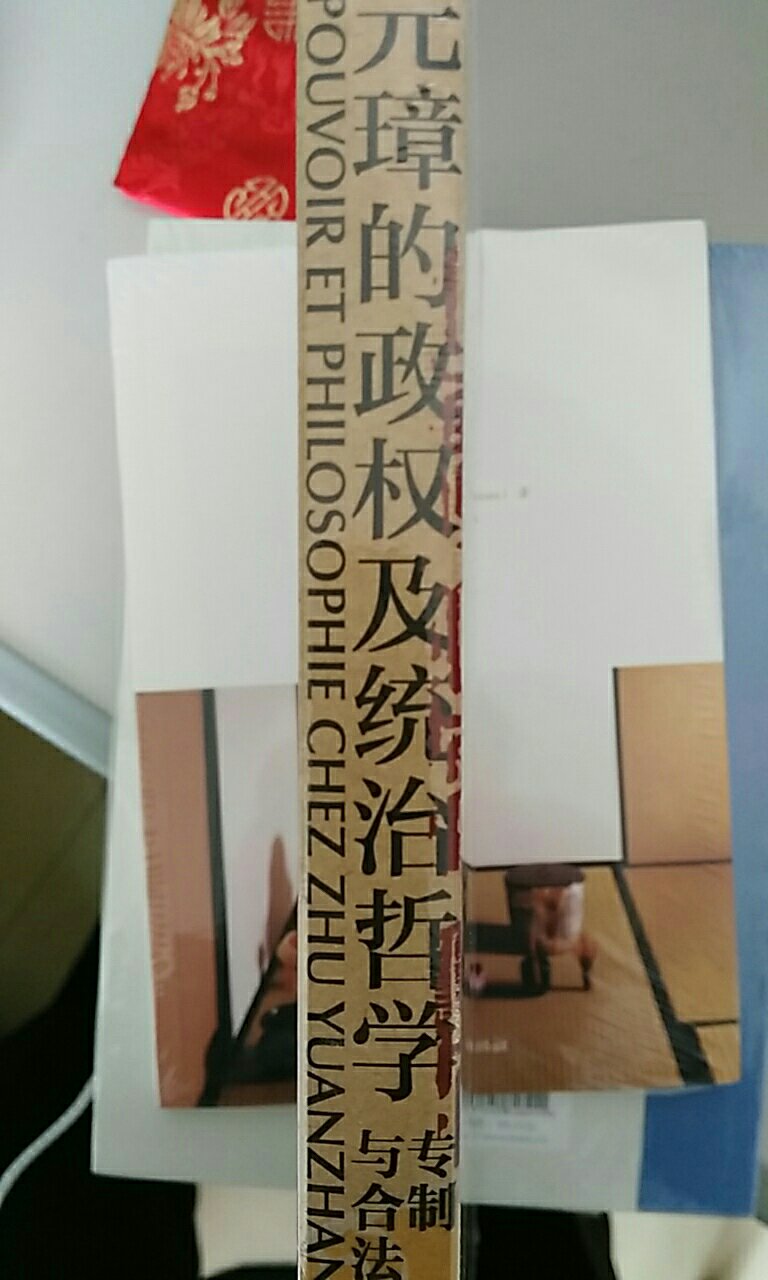 元璋的政权及统治哲学
专制
与合法
POUVOIR ET PHILOSOPHIE CHEZ ZHU YUANZHAN